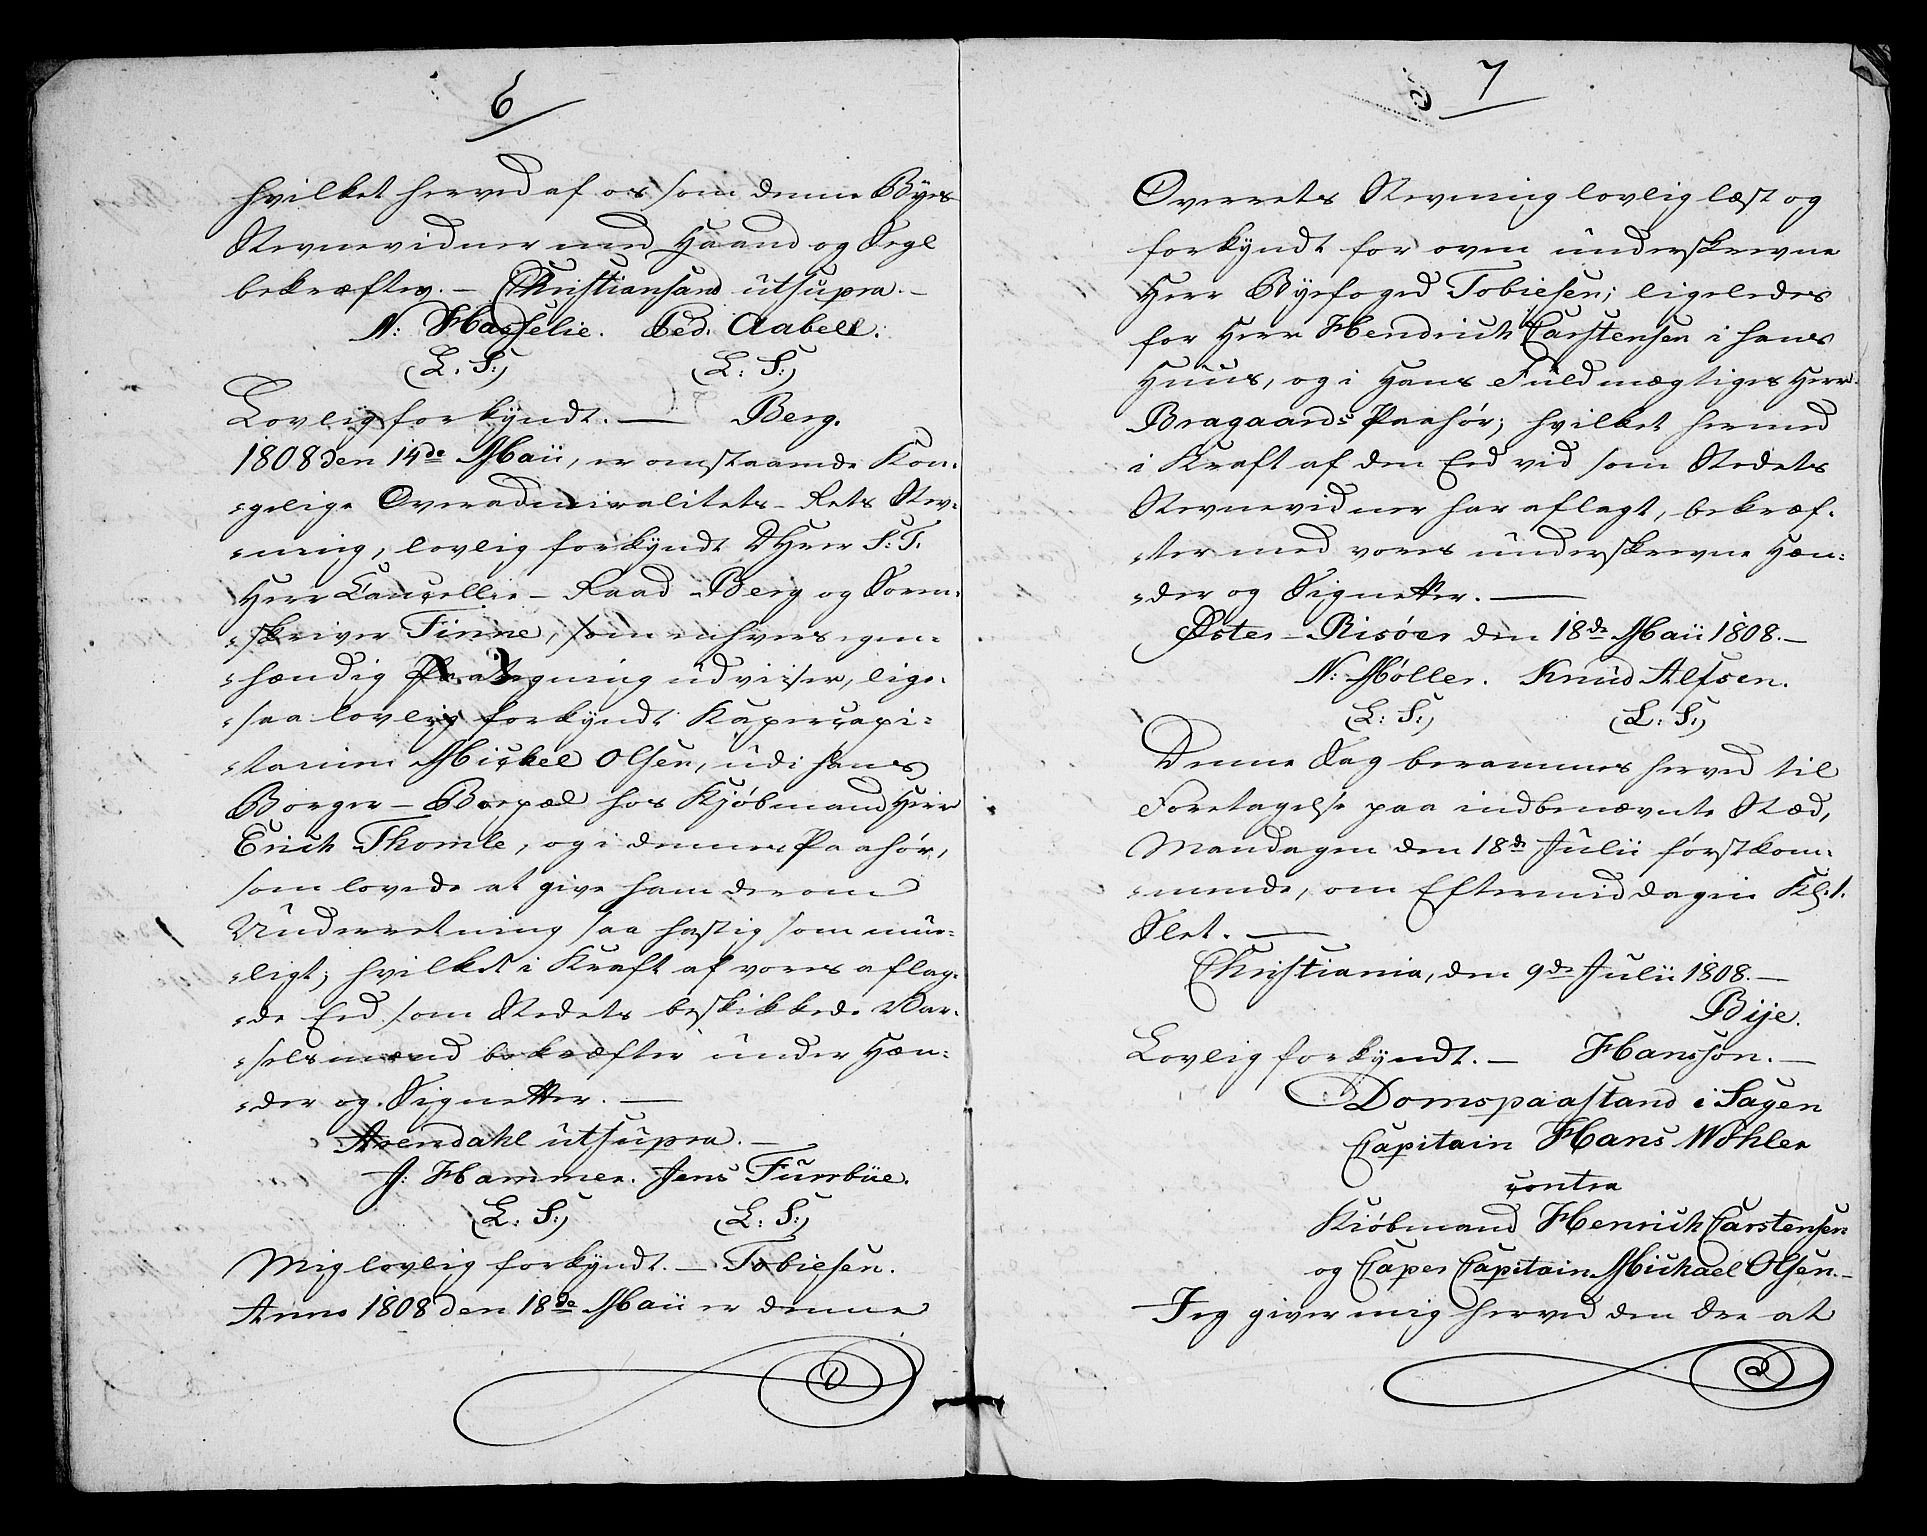 6
hvilket herved af os som denne Byes
Stevnevidner med Haand og Segl
bekræftes. – Christiansand utsupra. –
N: Hasselie. Ped. Aabell:
(L. S:) (L: S:)
Lovlig forkyndt. — Berg.
1808 den 14de Maii, er omstaaende Kon-
-gelige Overadmiralitets-Rets Stev-
-ning, lovlig forkyndt DHerr S: T.
Herr Cancellie-Raad Berg og Soren-
-skriver Finne, som enhvers egen-
-hændig Paategning udviser, lige-
-saa lovlig forkyndt Kapercapi-
-tainen Mickel Olsen, udi hans
Borger-Bopæl hos Kjøbmand Herr
Erich Thomle, og i dennes Paahør,
som lovede at give ham derom
Underretning saa hastig som mue-
-ligt; hvilket i Kraft af vores aflag-
-de Eed som Stedets beskikkede Var-
-selsmænd bekræfter under Hæn-
-der og Signetter. —
Arendahl utsupra. –
J: Hammer. Jens Furrbüe.
(L: S:) (L: S:)
Mig lovlig forkyndt. – Tobiesen.
Anno 1808 den 18de Maii er denne
7
Overrets Stevning lovlig læst og
forkyndt for oven underskrevne
Herr Byefoged Tobiesen; ligeledes
for Herr Hendrich Carstensen i hans
Huus, og i Hans Fuldmægtiges Herr
Bragaards Paahør; hvilket hermed
i Kraft af den Eed vid som Stedets
Stevnevidner har aflagt, bekræf-
-ter med vores underskrevne Hæn-
-der og Signetter. —
Øster-Risøer den 18de Maii 1808. –
N: Møller. Knud Alfsen.
(L: S:) (L: S:)
Denne Sag berammes herved til
Foretagelse paa indbenævnte Stæd,
Mandagen den 18de Julii førstkom-
-mende, om Eftermiddagen Kl: 1.
Slet. —
Christiania, den 9de Julii 1808. –
Bije.
Lovlig forkyndt. – Hansson. –
Domspaastand i Sagen
Capitain Hans Wöhler
contra
Kiöbmand Henrich Carstensen
og Caper Capitain Michael Olsen. –
Jeg giver mig herved den Ære at